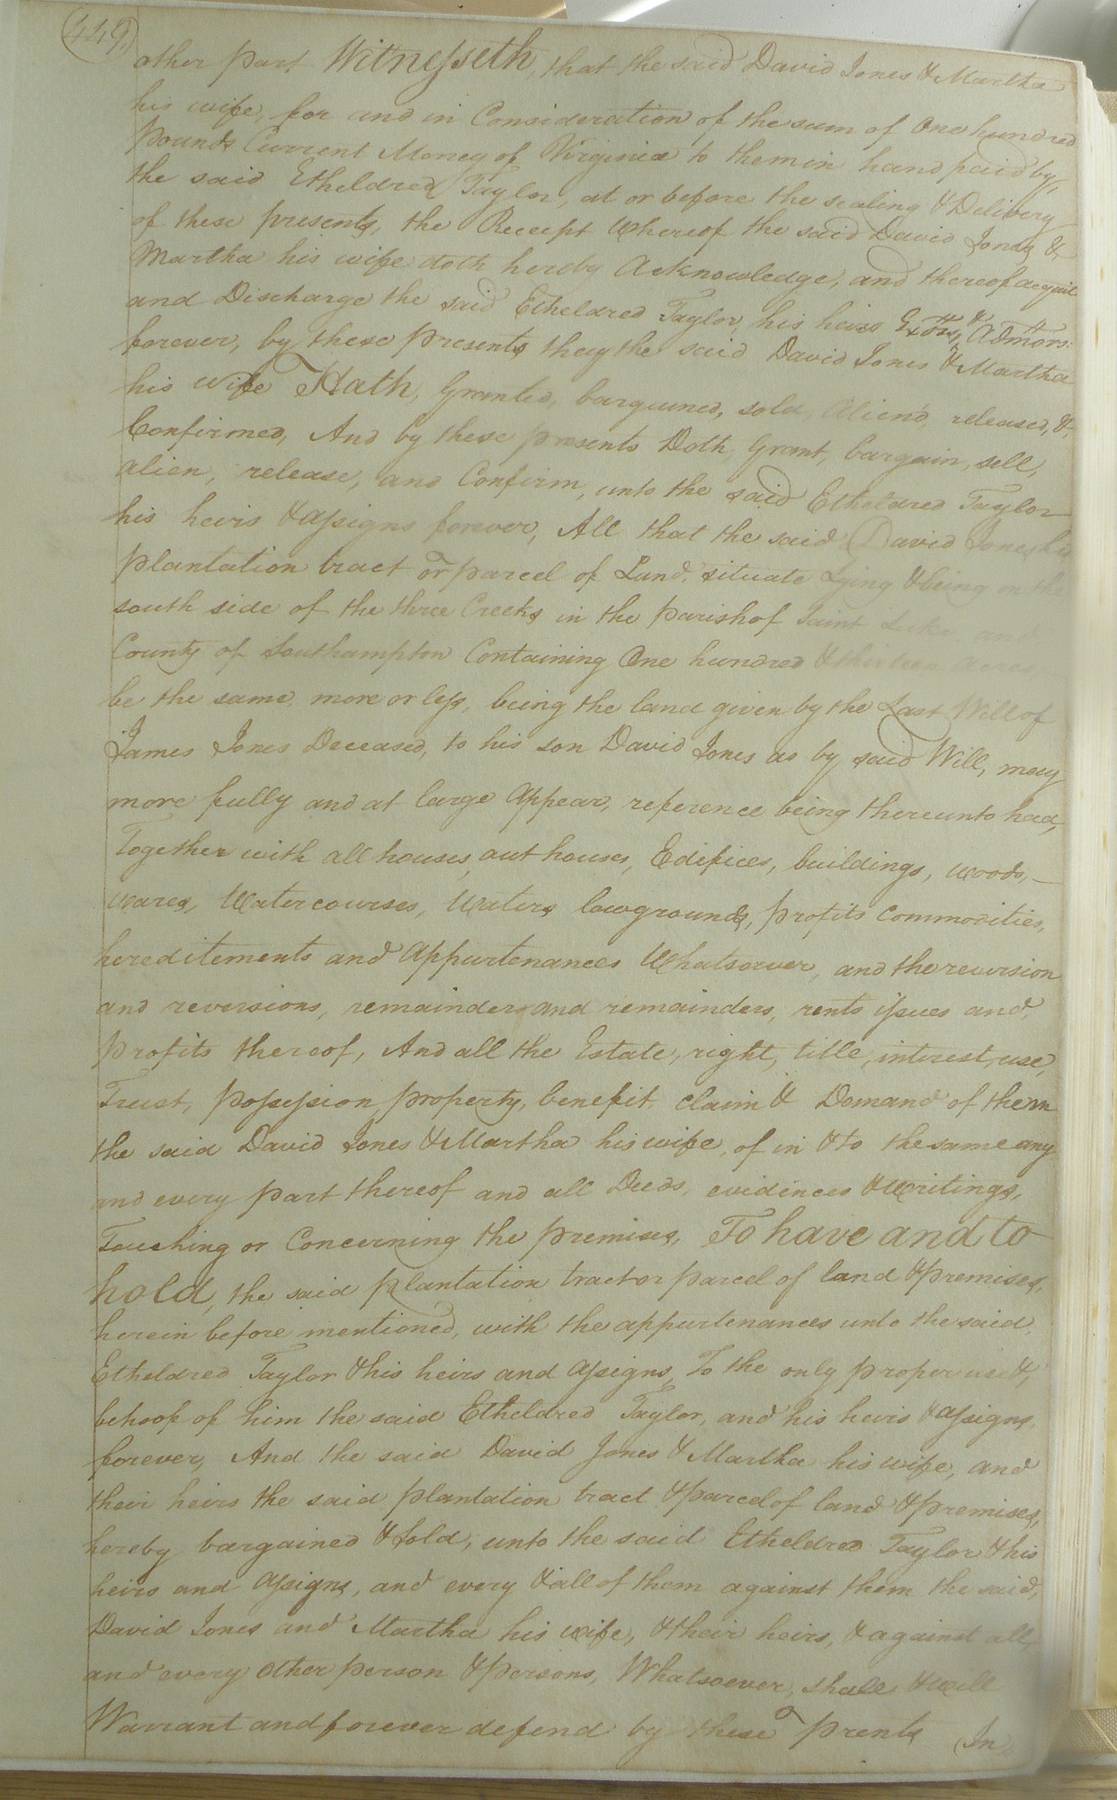 449,
other part Witnesseth, that the said David Jones & Martha
his wife, for and in Consideration of the sum of One hundred
Pounds Current Money of Virginia to them in hand paid by,
the said Etheldred Taylor, at or before the sealing & Delivery
of these presents, the Receipt Whereof the said David Jones &
Martha his wife doth herby Acknowledge, and thereof acquit
and Discharge the said Etheldred Taylor, his heirs Extors, & Admors.
forever, by these Presents they the said David Jones & Martha
his wife Hath, Granted, barguined, sold, Aliend, released, &
Confirmed, And by these presents Doth, Grant, bargain, sell,
alien, release, and Confirm, unto the said Etheldred Taylor
his heirs & assigns forever, All that the said David Jones his
Plantation tract or parcel of Land, situate Lying & being on the
south side of the three Creeks in the parish of Saint Luke and
County of Southampton Containing One hundred & thirteen acres
be the same more or less, being the land given by the Last Will of
James Jones Deceased, to his son David Jones as by said Will, may
more fully and at large Appear, reference being thereunto had,
Together with all houses, out houses, Edifices, buildings, woods,—
wares, Watercourses, Waters lowgrounds, profits Commodities,
hereditements and Appurtenances Whatsoever, and the reversion
and reversions, remainder and remainders, rents issues and
Profits thereof, And all the Estate, right, title, interest, use,
Trust, possession, property, benefit, claim & Demand of them
the said David Jones & Martha his wife, of in & to the same any
and every part thereof and all Deeds, evidences & writings,
Touching or Concerning the premises, To have and to
hold, the said plantation tract or parcel of land & premises,
herein before mentioned, with the appurtenances unto the said
Etheldred Taylor & his heirs and assigns, To the only proper use &
behoof of him the said Etheldred Taylor, and his heirs & assigns,
forever, And the said David Jones & Martha his wife, and
their heirs the said plantation tract & parcel of land & premises,
hereby bargained & sold, unto the said Etheldred Taylor & his
heirs and assigns, and every & all of them against them the said,
David Jones and Martha his wife, & their heirs, & against all,
and every other person & persons, Whatsoever, shall & will
Warrant and forever defend by these prents In